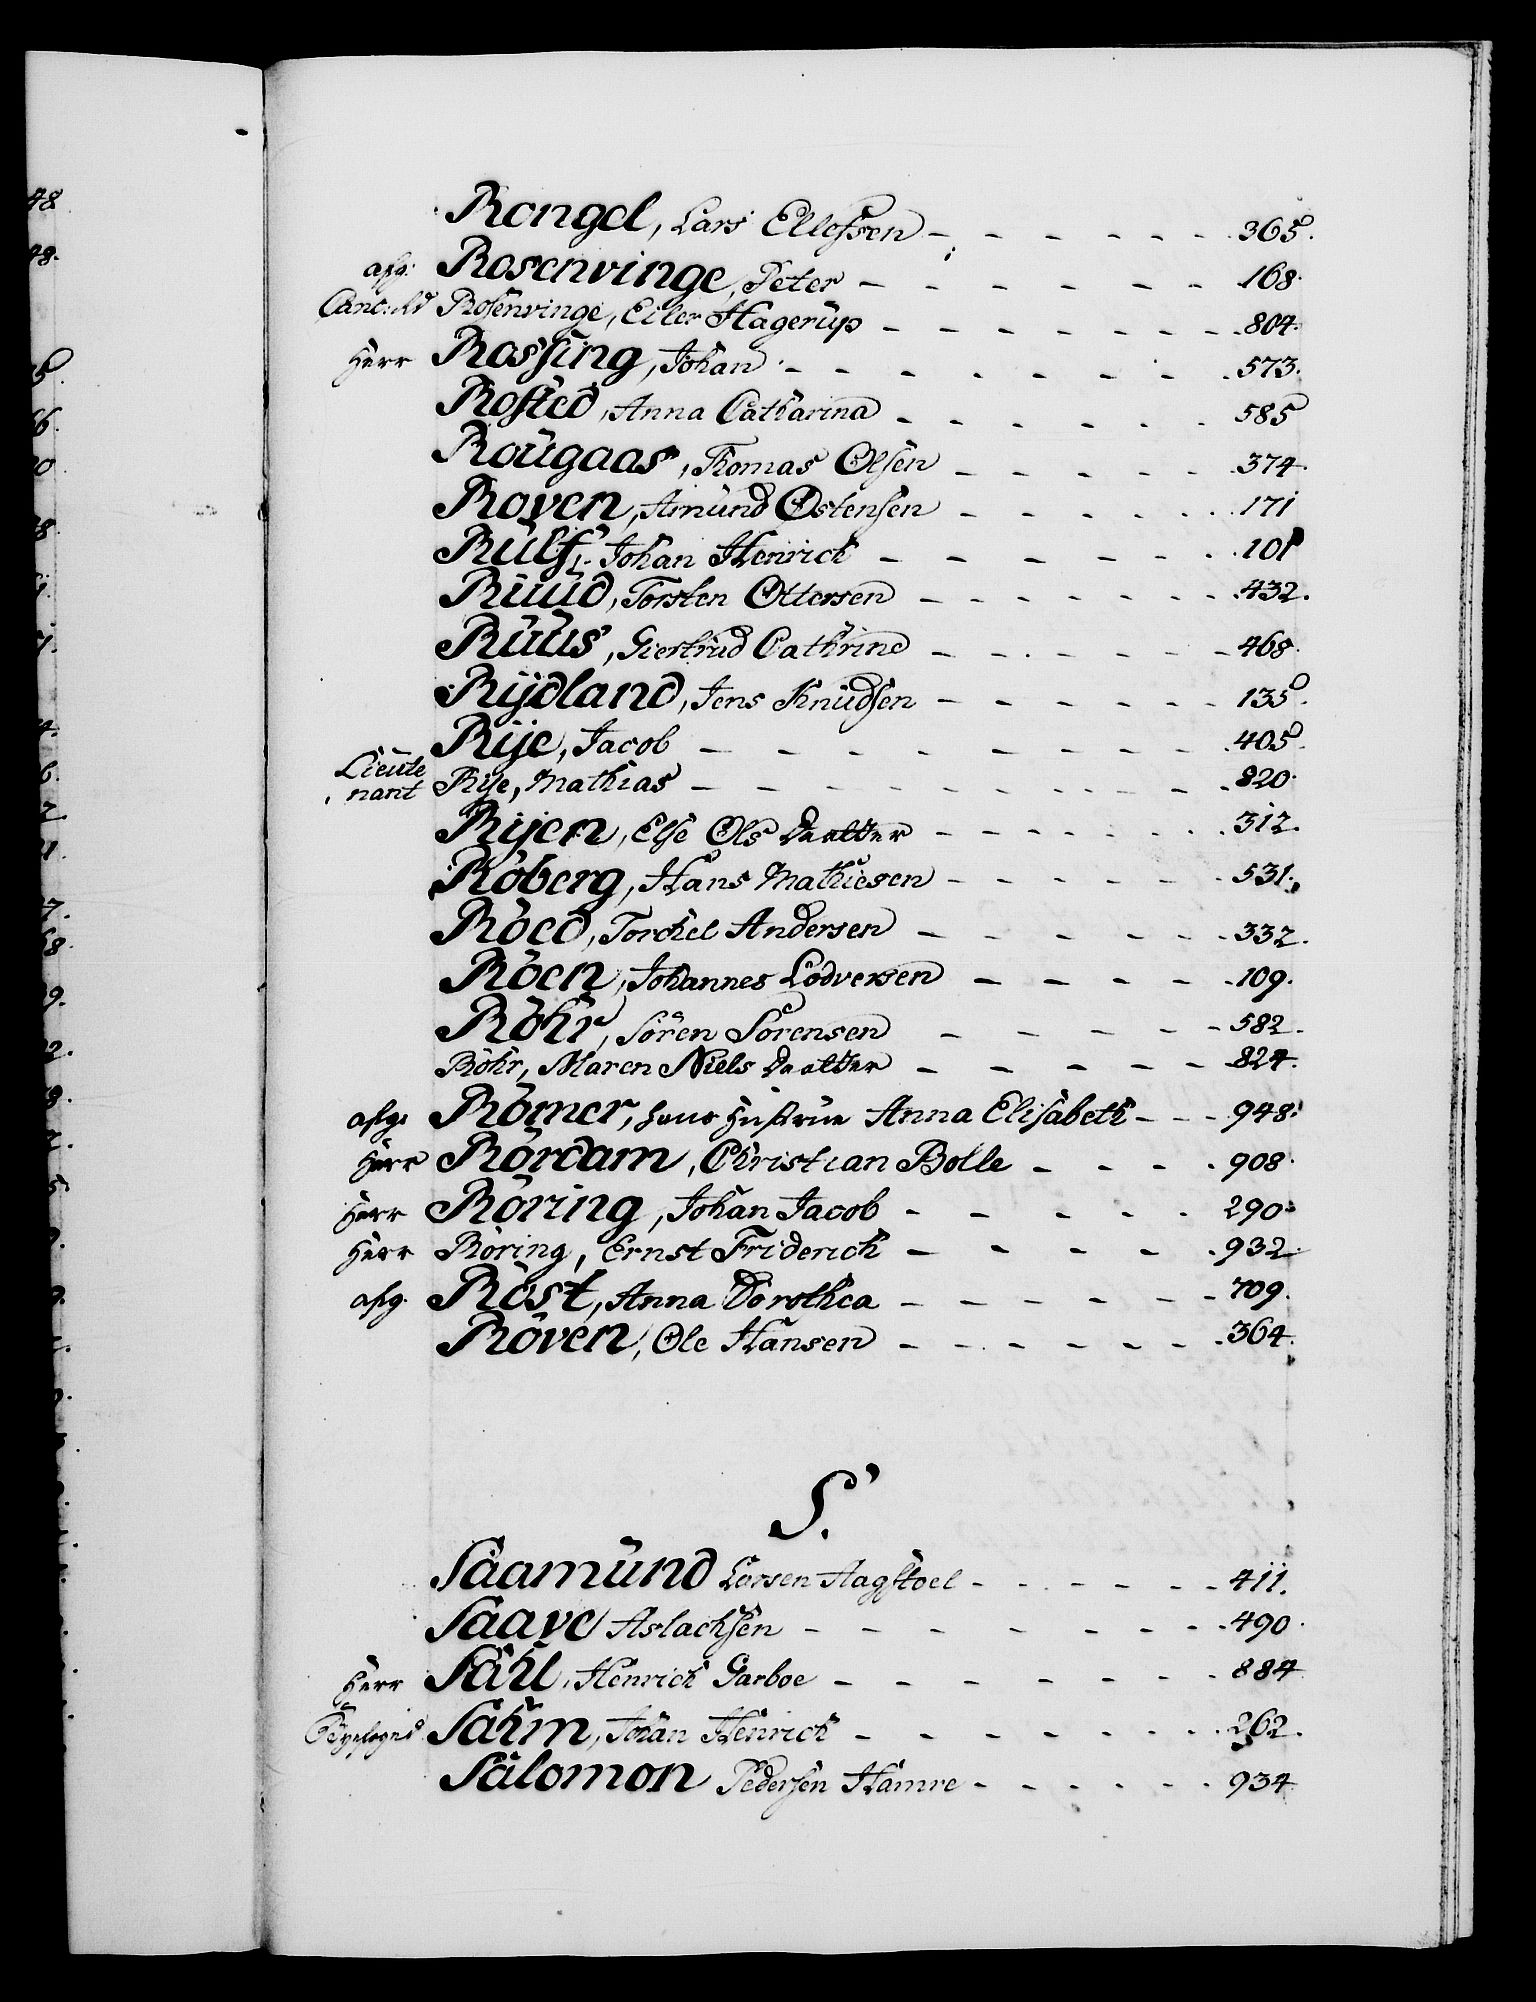 Rongel, Lars Ellefsen - - - - - - - 365.
afg: Rosenvinge, Peter - - - - - - - 168.
Rosenvinge, Eiler Hagerup - - - - - - - 804.
Herr Rossing, Johan - - - - - - - - 573.
Rosted, Anna Catharina - - - - - - 585
Rougaas, Thomas Olsen - - - - - 374.
Roven, Amund Østensen - - - - - - 171
Rulf, Johan Henrich - - - - - - 101
Ruud, Torsten Ottersen - - - - - - - 432.
Ruus, Giertrud Cathrine - - - - - - - 468.
Rydland, Jens Knudsen - - - - - - 135.
Rye, Jacob - - - - - - - - - 405.
Lieute
nant Rye, Mathias - - - - - - - - - 820.
Ryen, Else Ols Daatter - - - - - - - 312.
Röberg, Hans Mathiesen - - - - - - 531.
Röed, Torckel Andersen - - - - - - 332.
Röen, Johannes Lodversen - - - - - 109.
Röhr, Sören Sörensen - - - - - - 582.
Röhr, Maren Niels Daatter - - - - - - 824.
afg: Römer, hans Hustrue Anna Elisabeth - - - 948.
Herr Rördam, Christian Bolle - - - - 908.
Herr Röring, Johan Jacob - - - - - 290.
Herr Röring, Ernst Friderich - - - - - 932.
afg. Röst, Anna Dorothea - - - - - - 709.
Röven, Ole Hansen - - - - - - - 364.
S.
Saamund Larsen Aagstoel - - - - - - 411.
Saave Aslachsen - - - - - - - - 490.
Herr Sahl, Henrich Garboe - - - - - - 884
Byefoged Sahm, Johan Henrich - - - - - - - 262.
Salomon Pedersen Hamre - - - - - - 934